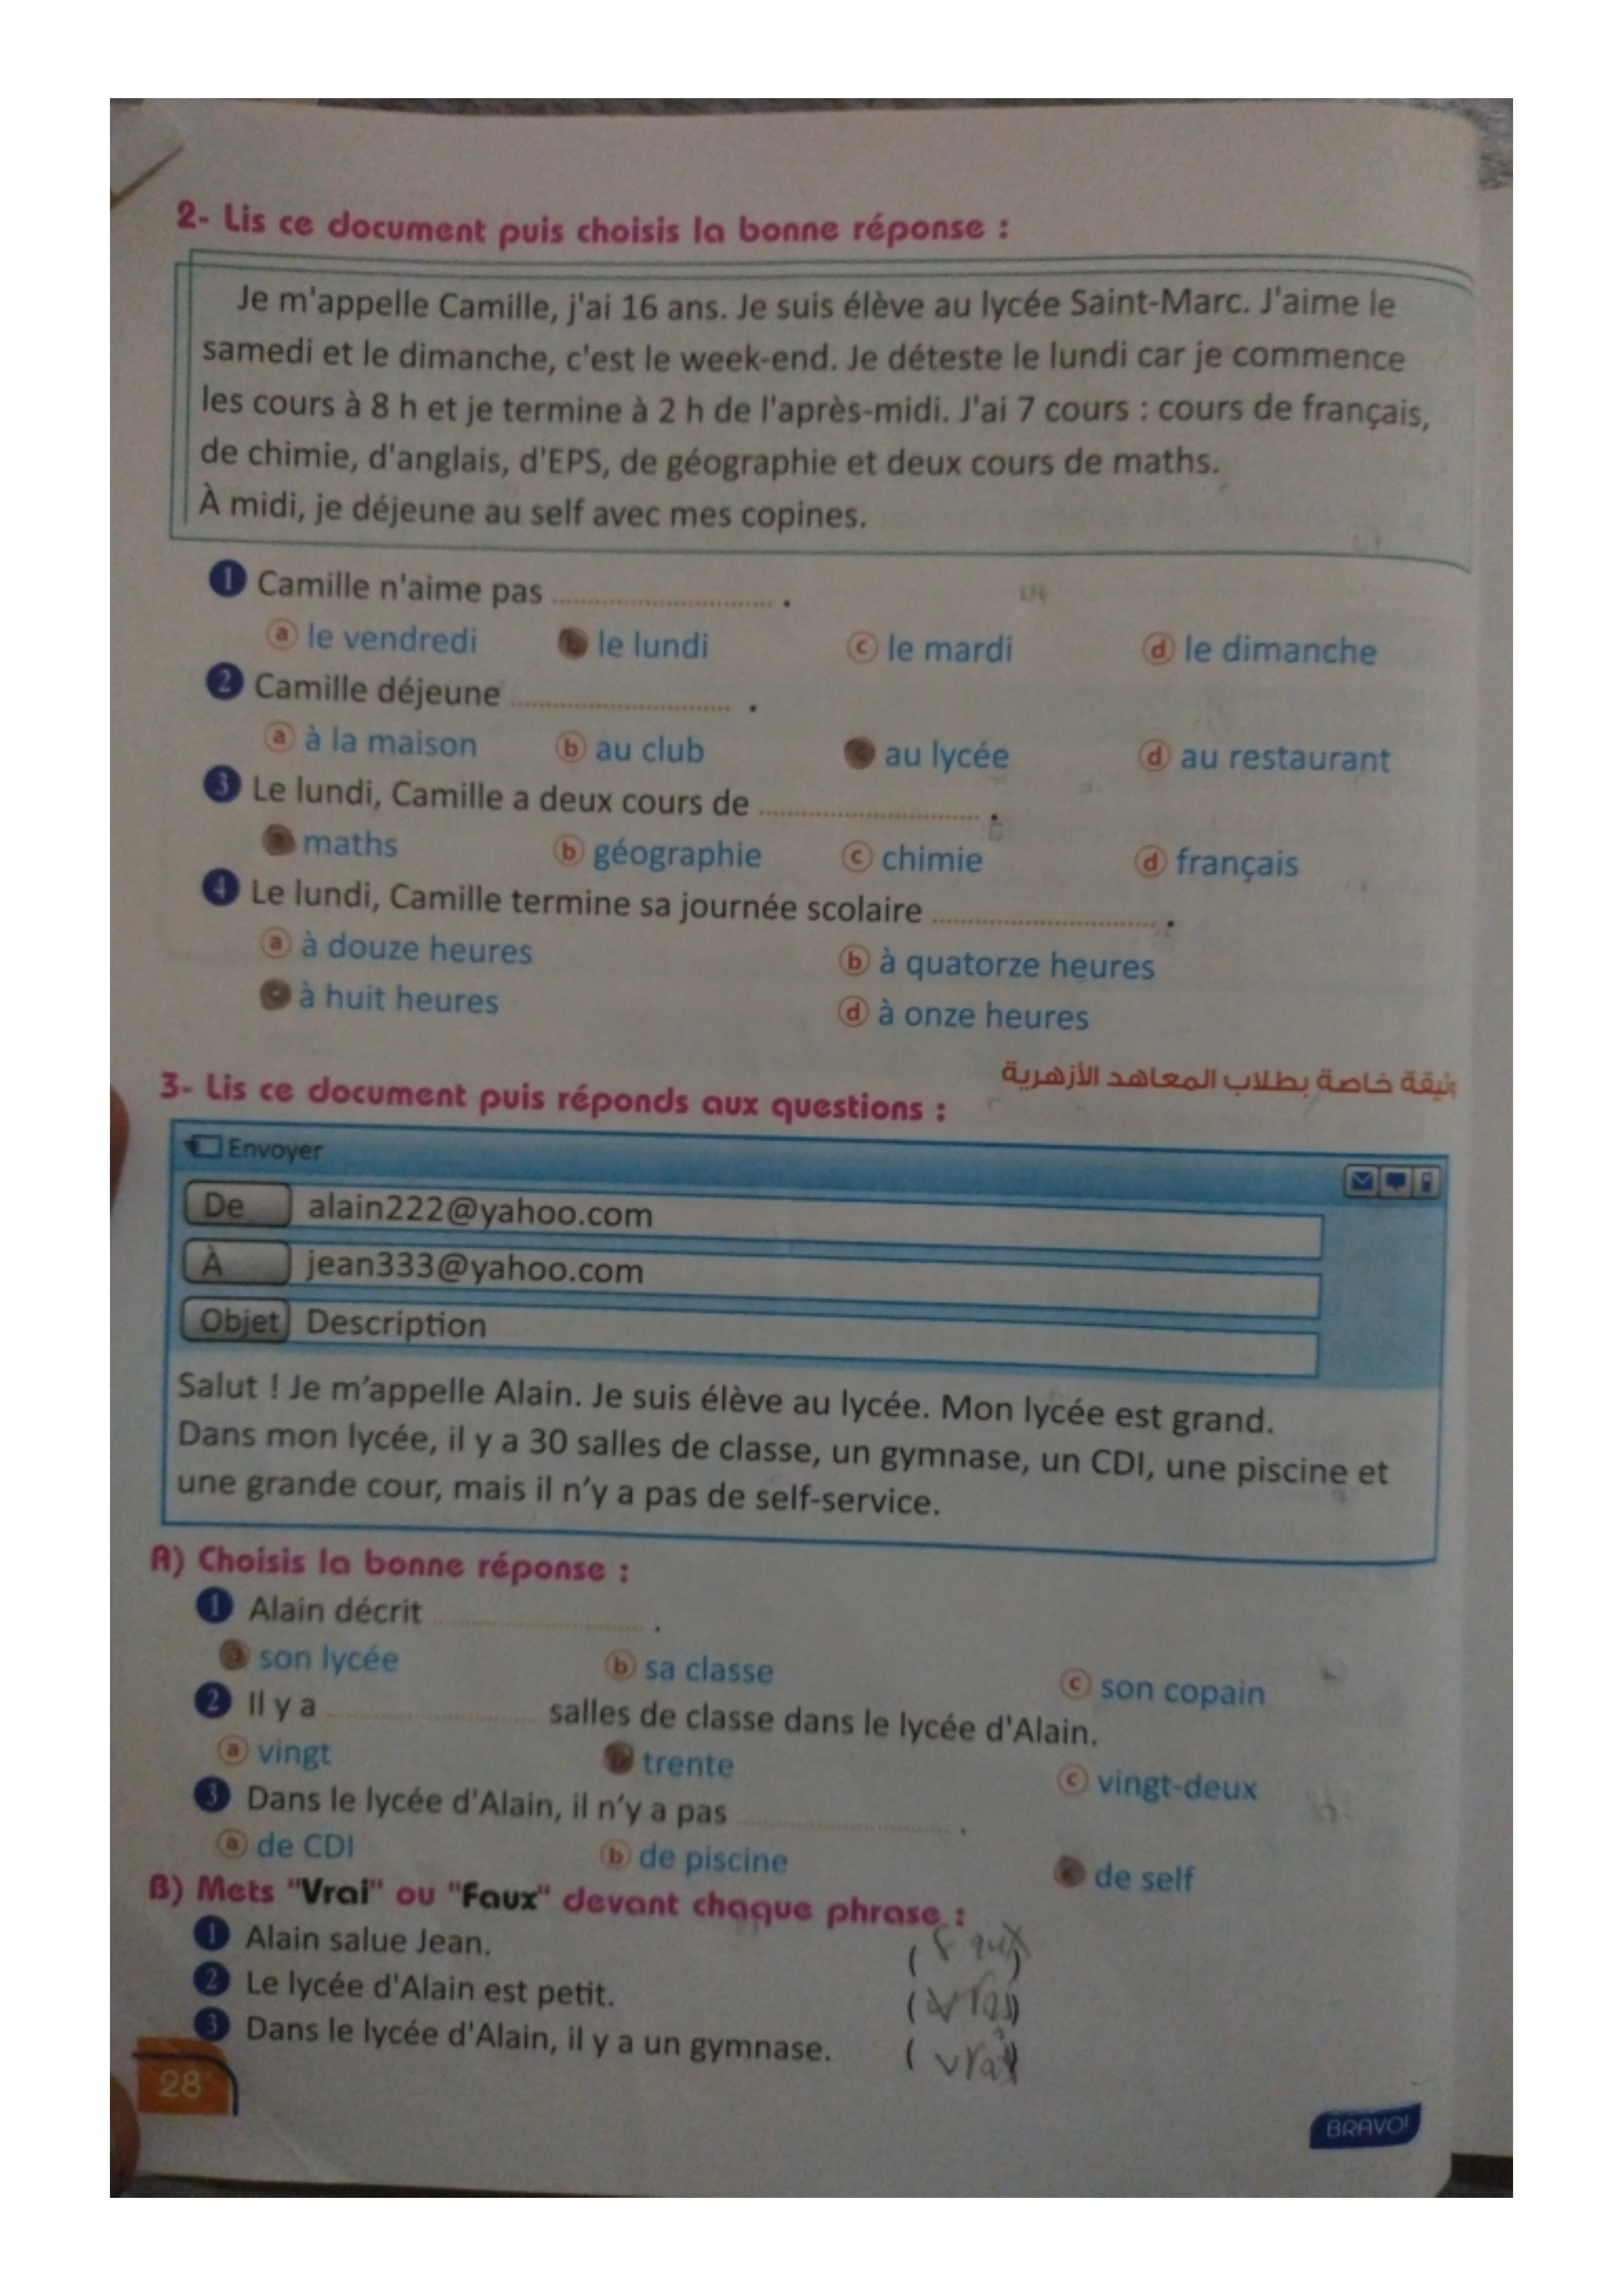 2- Lis ce document puis choisis la bonne réponse :
Je m'appelle Camille, j'ai 16 ans. Je suis élève au lycée Saint-Marc. J'aime le
samedi et le dimanche, c'est le week-end. Je déteste le lundi car je commence
les cours à 8 h et je termine à 2 h de l'après-midi. J'ai 7 cours : cours de français,
de chimie, d'anglais, d'EPS, de géographie et deux cours de maths.
À midi, je déjeune au self avec mes copines.
1 Camille n'aime pas .......................... .
a le vendredi b le lundi c le mardi d le dimanche
2 Camille déjeune .......................... .
a à la maison b au club au lycée d au restaurant
3 Le lundi, Camille a deux cours de .......................... .
maths b géographie c chimie d français
4 Le lundi, Camille termine sa journée scolaire .......................... .
a à douze heures b à quatorze heures
à huit heures d à onze heures
وثيقة خاصة بطلاب المعاهد الأزهرية
3- Lis ce document puis réponds aux questions :
Envoyer
De alain222@yahoo.com
À jean333@yahoo.com
Objet Description
Salut ! Je m'appelle Alain. Je suis élève au lycée. Mon lycée est grand.
Dans mon lycée, il y a 30 salles de classe, un gymnase, un CDI, une piscine et
une grande cour, mais il n'y a pas de self-service.
A) Choisis la bonne réponse :
1 Alain décrit .......................... .
a son lycée b sa classe c son copain
2 Il y a .......................... salles de classe dans le lycée d'Alain.
a vingt b trente c vingt-deux
3 Dans le lycée d'Alain, il n'y a pas .......................... .
a de CDI b de piscine de self
B) Mets "Vrai" ou "Faux" devant chaque phrase :
1 Alain salue Jean. (Faux)
2 Le lycée d'Alain est petit. (vrai)
3 Dans le lycée d'Alain, il y a un gymnase. (vrai)
28
BRAVO!